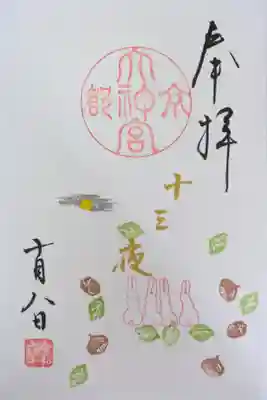 奉拝
大神宮
十三夜
十月八日